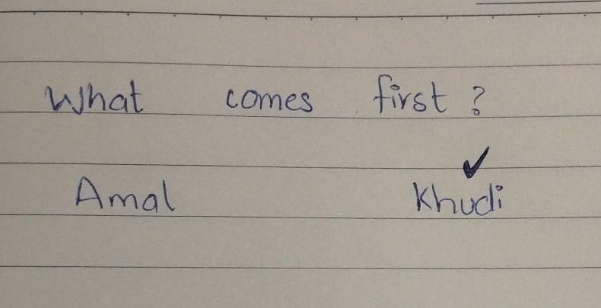 What comes first ?
✓
Amal Khudi